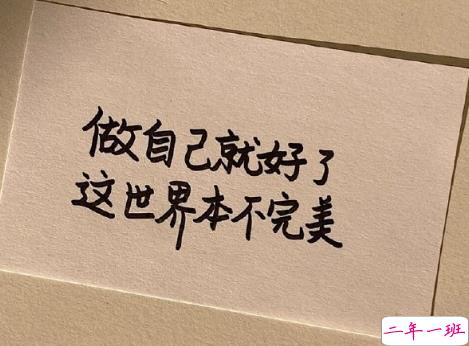 做自己就好了
这世界本不完美
二年一班